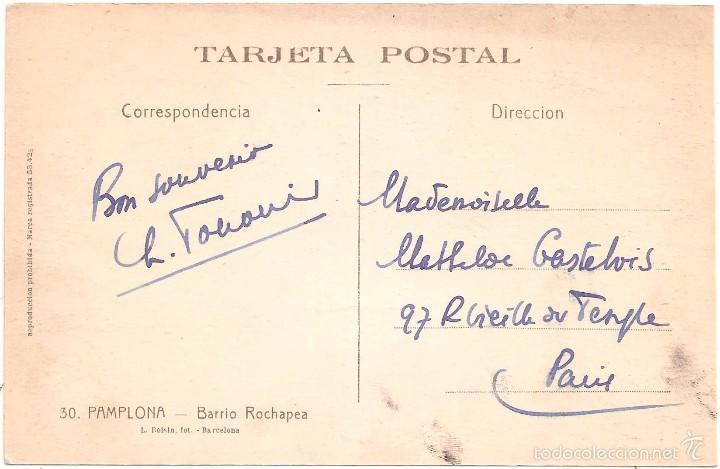 TARJETA POSTAL
Correspondencia
Direccion
Bon souvenir
Mademoiselle
Mathilde Castelvis
97 R Vieille du Temple
Paris
Reproduccion prohibida - Marca registrada
30. PAMPLONA — Barrio Rochapea
L. Roisin, fot. - Barcelona
todocoleccion.net